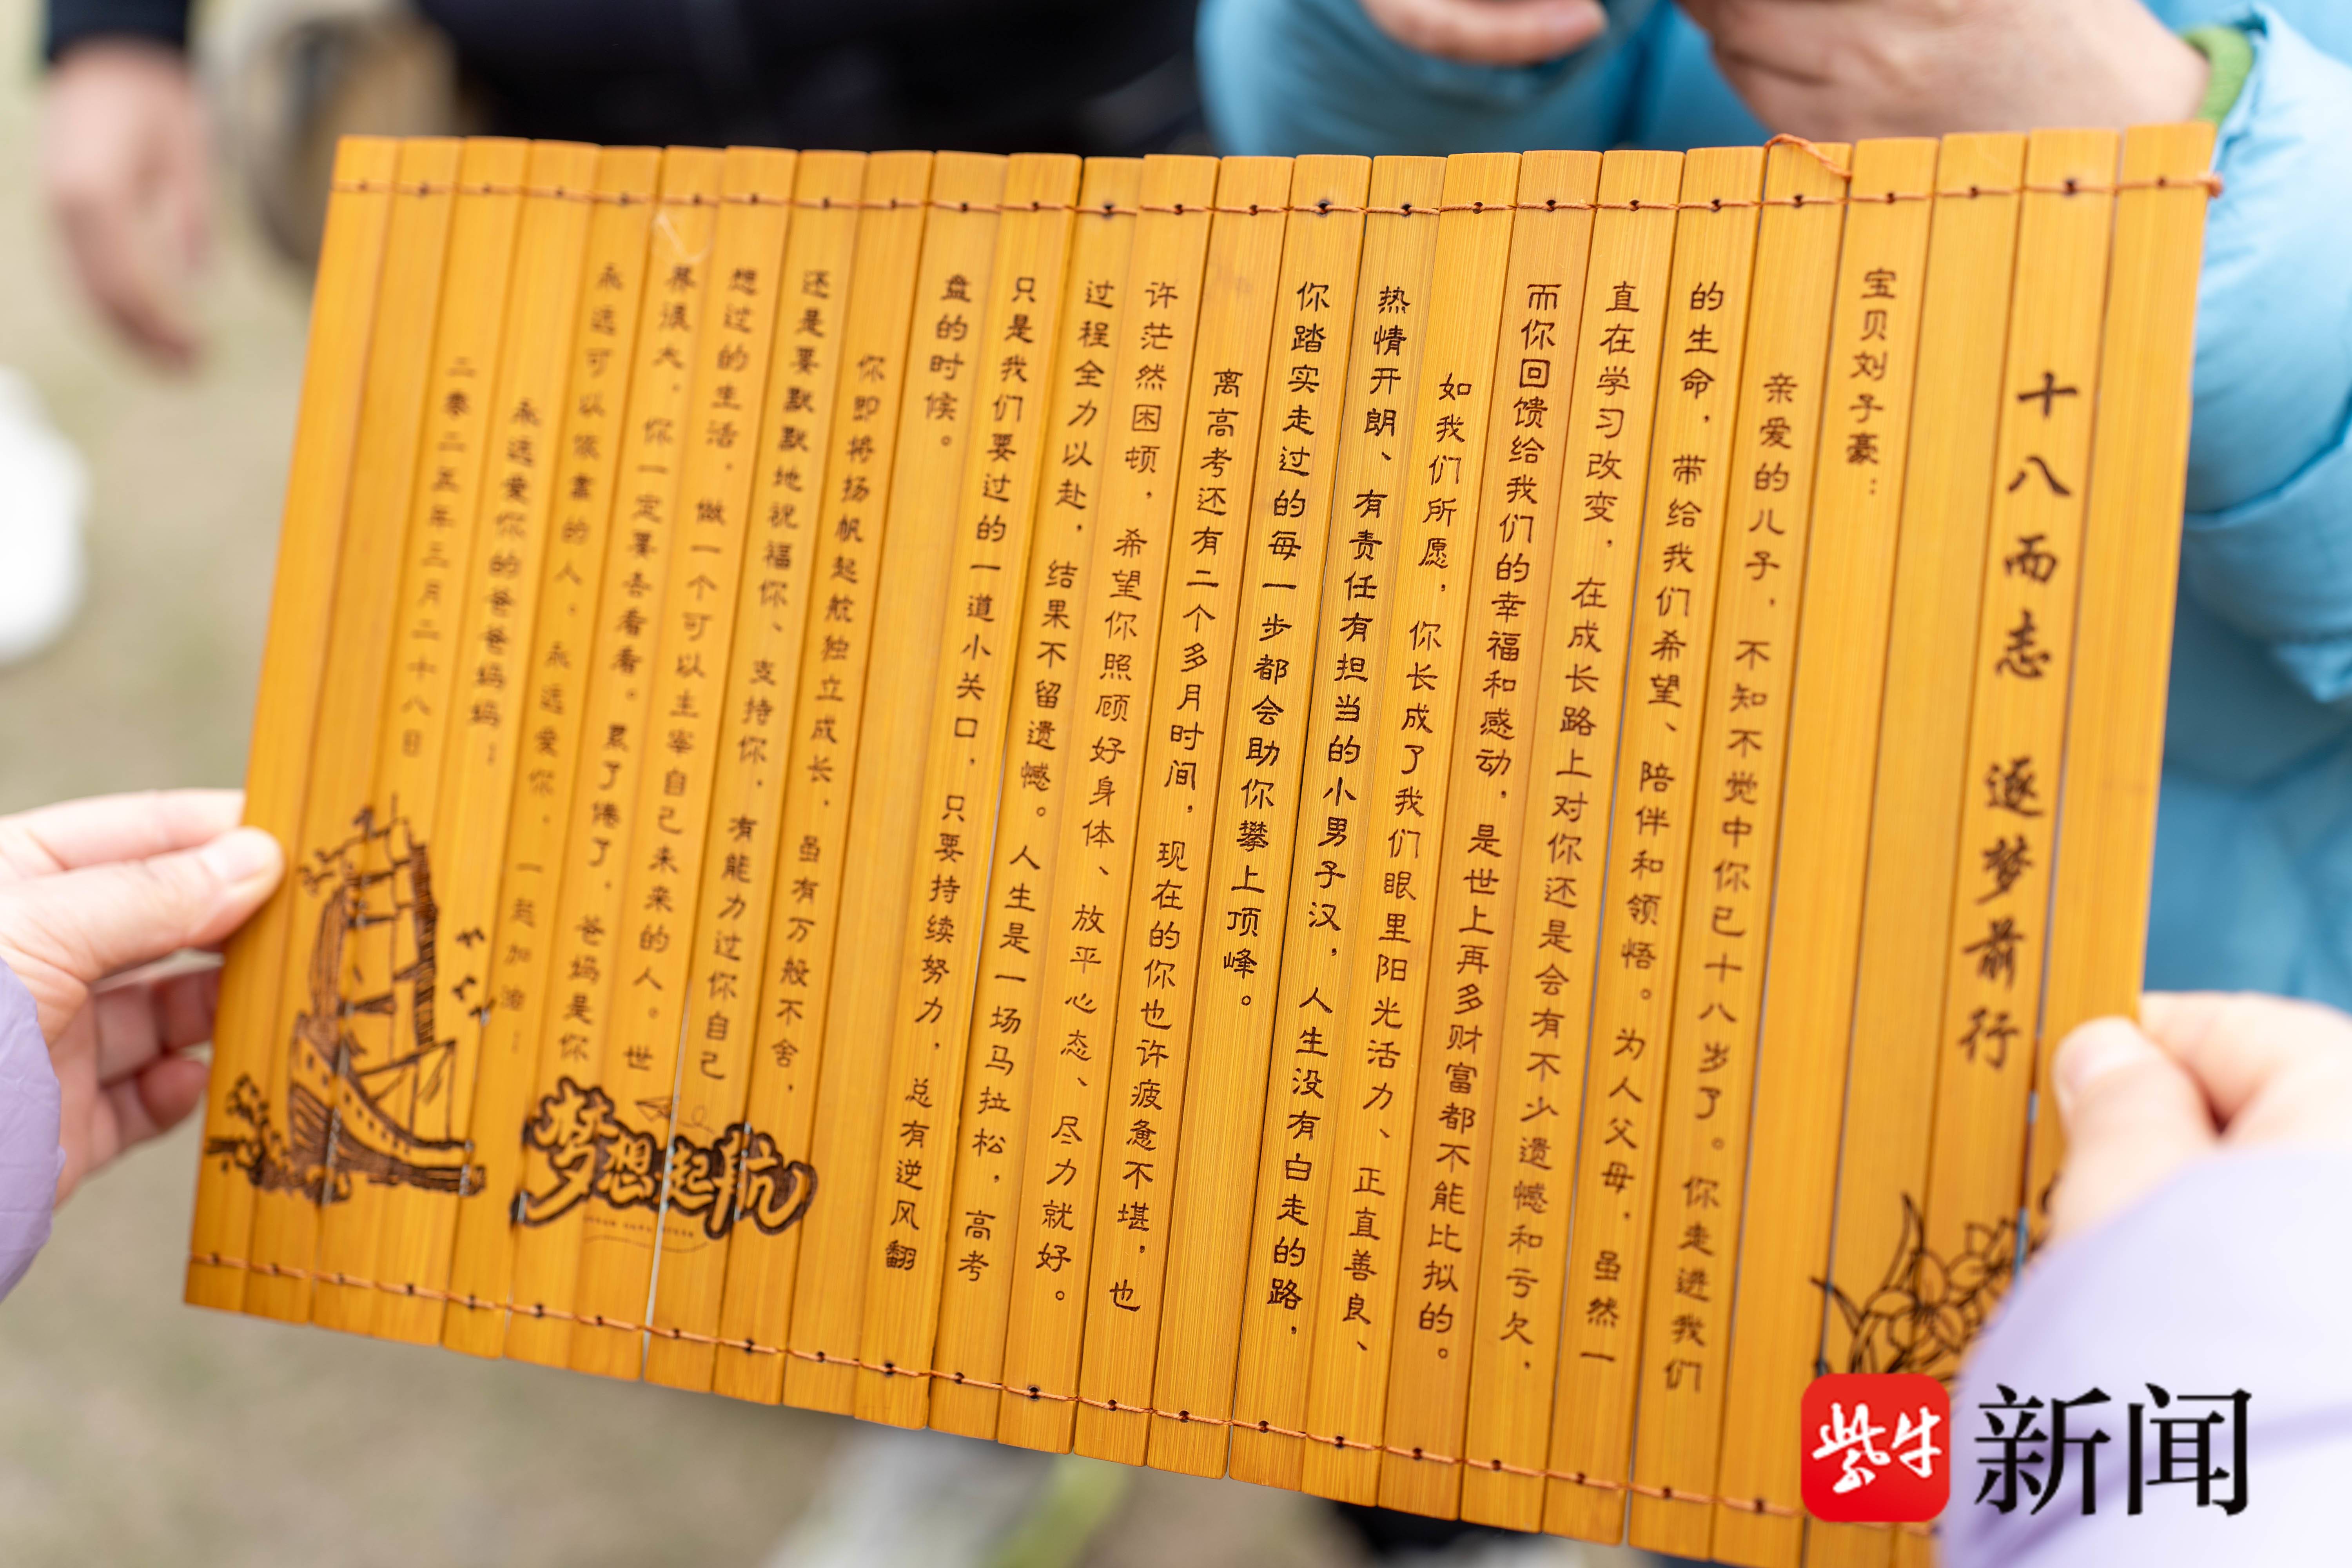 十八而志 逐梦前行
宝贝刘子豪：
亲爱的儿子，不知不觉中你已十八岁了。你走进我们
的生命，带给我们希望、陪伴和领悟。为人父母，虽然一
直在学习改变，在成长路上对你还是会有不少遗憾和亏欠，
而你回馈给我们的幸福和感动，是世上再多财富都不能比拟的。
如我们所愿，你长成了我们眼里阳光活力、正直善良、
热情开朗、有责任有担当的小男子汉，人生没有白走的路，
你踏实走过的每一步都会助你攀上顶峰。
离高考还有二个多月时间，现在的你也许疲惫不堪，也
许茫然困顿，希望你照顾好身体、放平心态、尽力就好。
过程全力以赴，结果不留遗憾。人生是一场马拉松，高考
只是我们要过的一道小关口，只要持续努力，总有逆风翻
盘的时候。
你即将扬帆起航独立成长，虽有万般不舍，
还是要默默地祝福你、支持你，有能力过你自己
想过的生活，做一个可以主宰自己未来的人。世
界很大，你一定要去看看。累了倦了，爸妈是你
永远可以依靠的人，永远爱你，一起加油！
永远爱你的爸爸妈妈：
二零二五年三月二十八日
梦想起航
紫牛
新闻